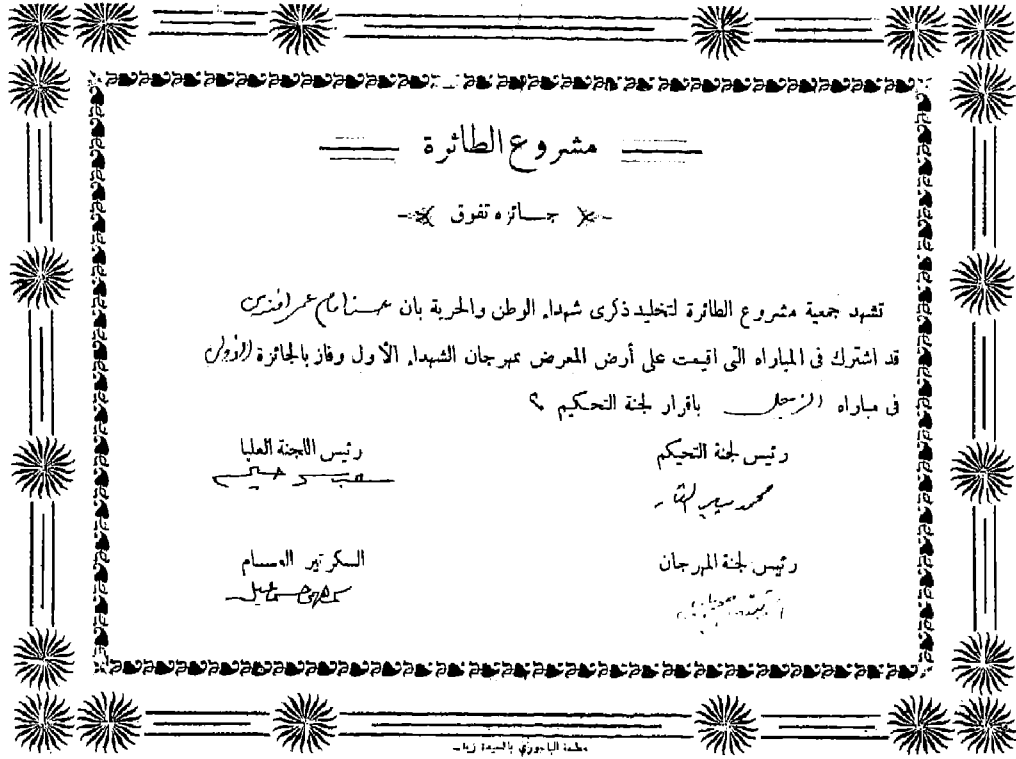 مشروع الطائرة
جائزه تفوق
تشهد جمعية مشروع الطائرة لتخليد ذكرى شهداء الوطن والحرية بان عمر افندى
قد اشترك فى المباراه التى اقيمت على أرض المعرض بمهرجان الشهداء الأول وفاز بالجائزة الأولى
فى مباراه الزجل باقرار لجنة التحكيم
رئيس لجنة التحيكم
رئيس اللجنة العليا
محمد
رئيس لجنة المهرجان
السكرتير العسام
مطبعة الباجورى بالسيدة زينب